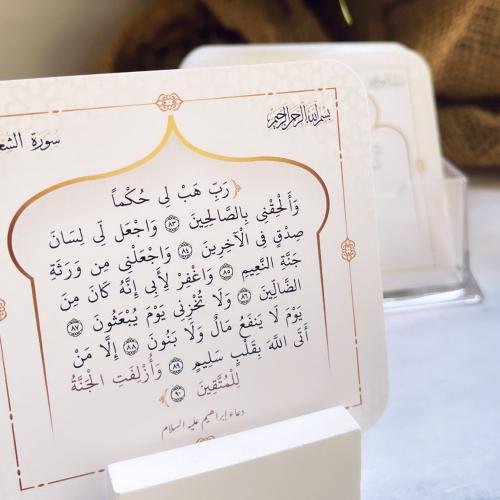 بسم الله الرحمن الرحيم
سورة الشع
﴿رَبِّ هَبْ لِى حُكْماً
وَأَلْحِقْنِى بِالصَّالِحِينَ ٨٣ وَاجْعَل لِّى لِسَانَ
صِدْقٍ فِى الْآخِرِينَ ٨٤ وَاجْعَلْنِى مِن وَرَثَةِ
جَنَّةِ النَّعِيمِ ٨٥ وَاغْفِرْ لِأَبِى إِنَّهُ كَانَ مِنَ
الضَّالِّينَ ٨٦ وَلَا تُخْزِنِى يَوْمَ يُبْعَثُونَ ٨٧
يَوْمَ لَا يَنفَعُ مَالٌ وَلَا بَنُونَ ٨٨ إِلَّا مَنْ
أَتَى اللَّهَ بِقَلْبٍ سَلِيمٍ ٨٩ وَأُزْلِفَتِ الْجَنَّةُ
لِلْمُتَّقِينَ ٩٠﴾
دعاء إبراهيم عليه السلام